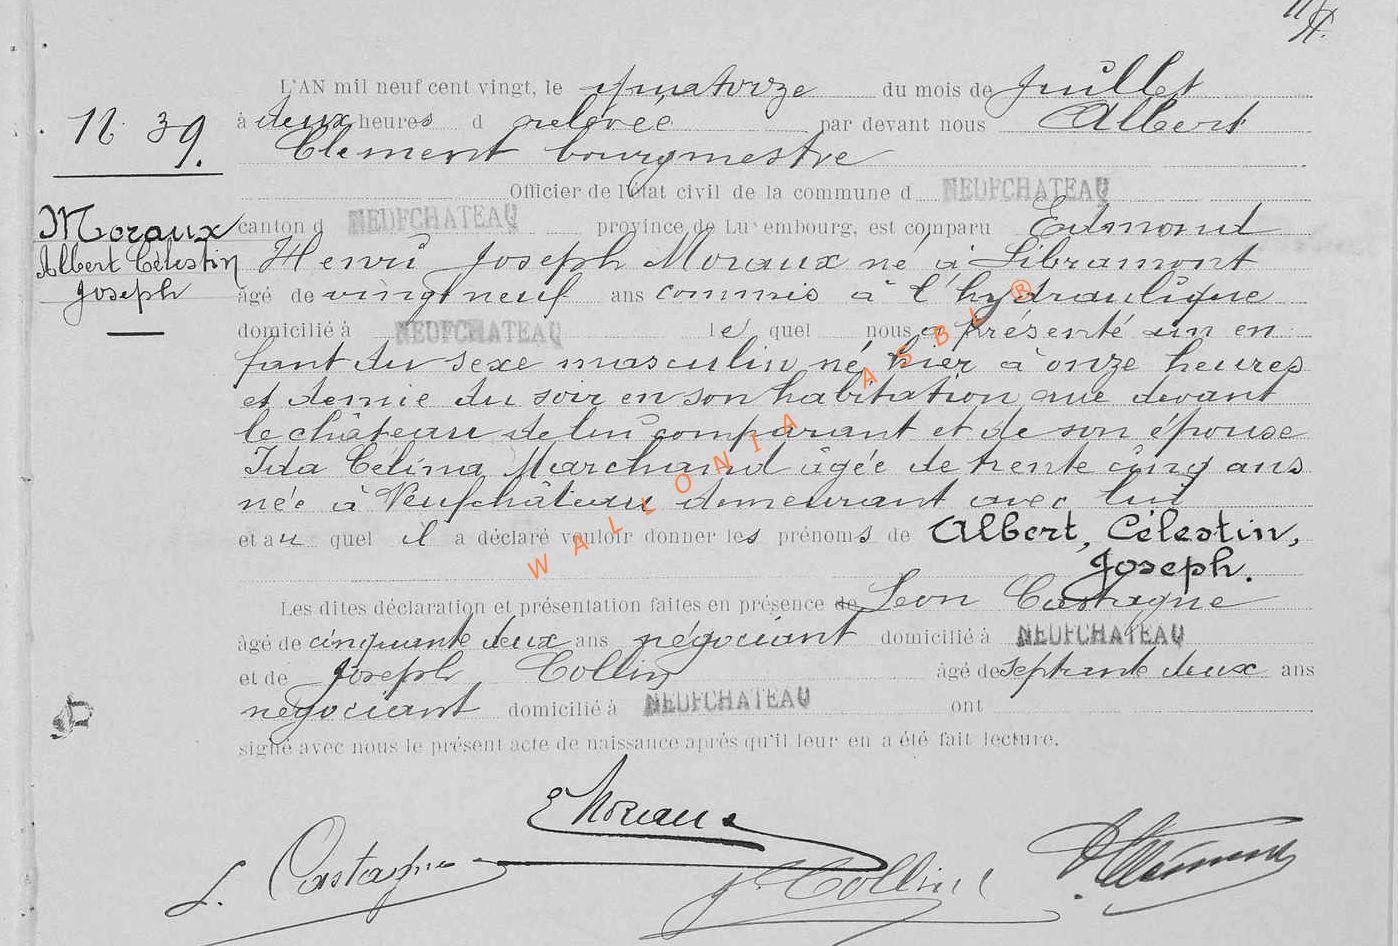 L'AN mil neuf cent vingt, le quatorze du mois de Juillet
N. 39.
à deux heures d relevée par devant nous Albert
Clément bourgmestre
Officier de l'état civil de la commune d NEUFCHATEAU
Moraux
Albert Célestin
Joseph
canton d NEUFCHATEAU province de Luxembourg, est comparu Edmond
Henri Joseph Moraux né à Libramont
âgé de vingt neuf ans commis à l'hydraulique
domicilié à NEUFCHATEAU lequel nous a présenté un en
fant du sexe masculin né hier à onze heures
et demie du soir en son habitation rue devant
le château de lui comparant et de son épouse
Ida Célina Marchand âgée de trente cinq ans
née à Neufchâteau demeurant avec lui
et au quel il a déclaré vouloir donner les prénoms de Albert, Célestin,
Joseph.
Les dites déclaration et présentation faites en présence de Léon Castagne
âgé de cinquante deux ans négociant domicilié à NEUFCHATEAU
et de Joseph Collin âgé de septante deux ans
négociant domicilié à NEUFCHATEAU ont
signé avec nous le présent acte de naissance après qu'il leur en a été fait lecture.
E Moraux
L. Castagne
J. Collin
A Clément
WALLONIA ASBL ®